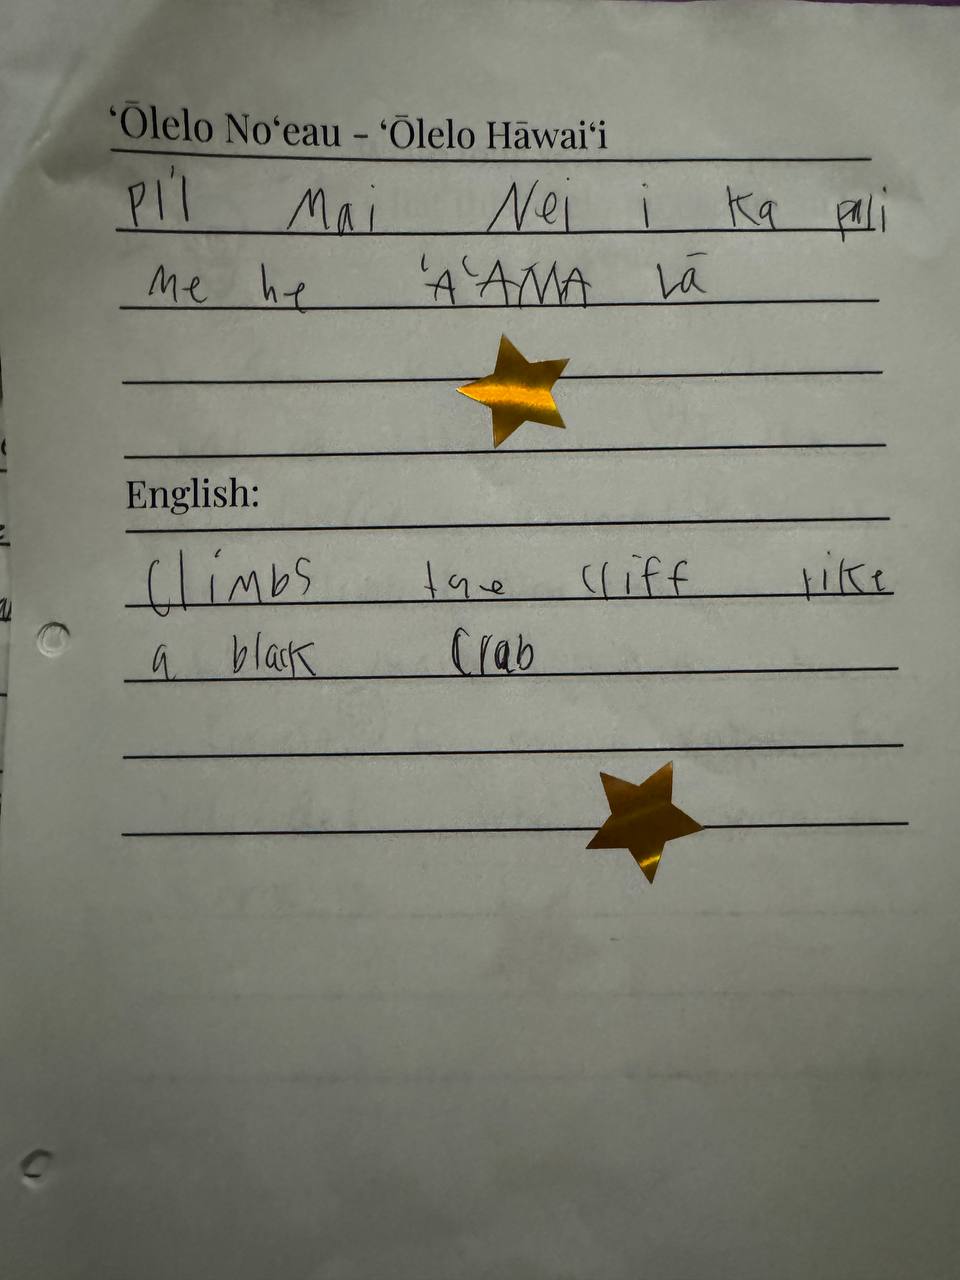 ʻŌlelo Noʻeau - ʻŌlelo Hāwaiʻi
PI'I Mai Nei i Ka pali
Me he ʻAʻAMA Lā
English:
Climbs tge cliff like
a black Crab